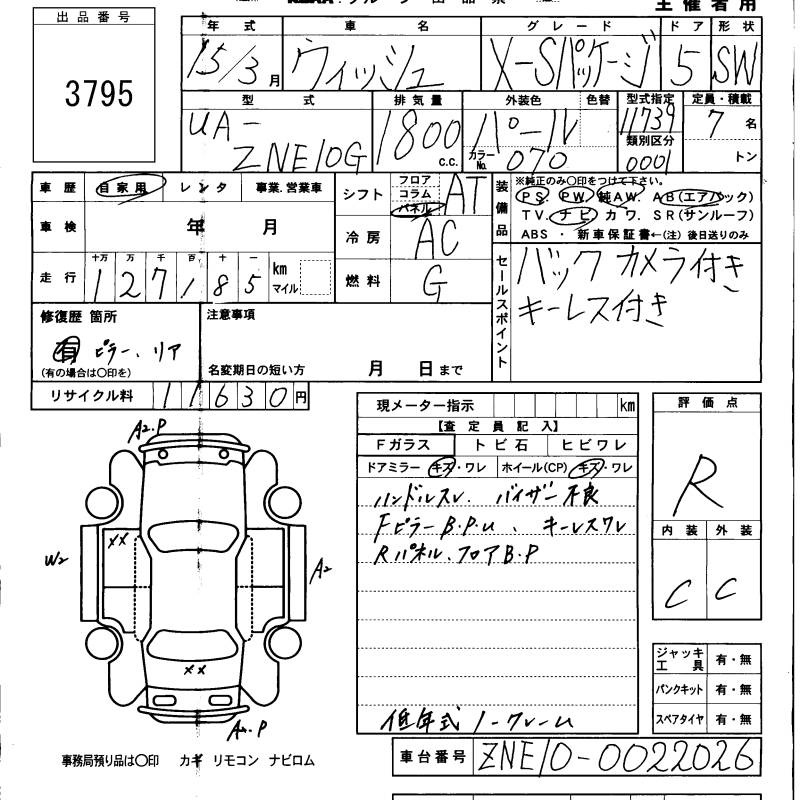 主催者用
出品番号
3795
年式 車名 グレード ドア 形状
15/3月 ウィッシュ X-Sパッケージ 5 SW
型式 排気量 外装色 色替 型式指定 定員・積載
UA- 1800 c.c. パール 11739 7名
ZNE10G カラーNo. 070 類別区分 0001 トン
車歴 自家用 レンタ 事業.営業車
シフト フロア コラム パネル AT
装備品 ※純正のみ○印をつけて下さい。
PS. PW. 純AW. AB(エアバック)
TV. ナビ カワ. SR(サンルーフ)
ABS ・ 新車保証書←(注) 後日送りのみ
車検 年 月
冷房 AC
走行 十万 万 千 百 十 一
127185 km マイル
燃料 G
セールスポイント バックカメラ付き
キーレス付き
修復歴 箇所
有 ピラー、リア
(有の場合は○印を)
注意事項
名変期日の短い方 月 日まで
リサイクル料 11630円
現メーター指示 km
【査定員記入】
Fガラス トビ石 ヒビワレ
ドアミラー キズ・ワレ ホイール(CP) キズ・ワレ
ハンドルスレ. バイザー不良
Fピラー B.P.u、キーレスワレ
Rパネル.フロア B.P
低年式ノークレーム
評価点
R
内装 外装
C C
A2.P
XX
W2
A2
XX
P
ジャッキ工具 有・無
パンクキット 有・無
スペアタイヤ 有・無
事務局預り品は○印 カギ リモコン ナビロム
車台番号 ZNE10-0022026